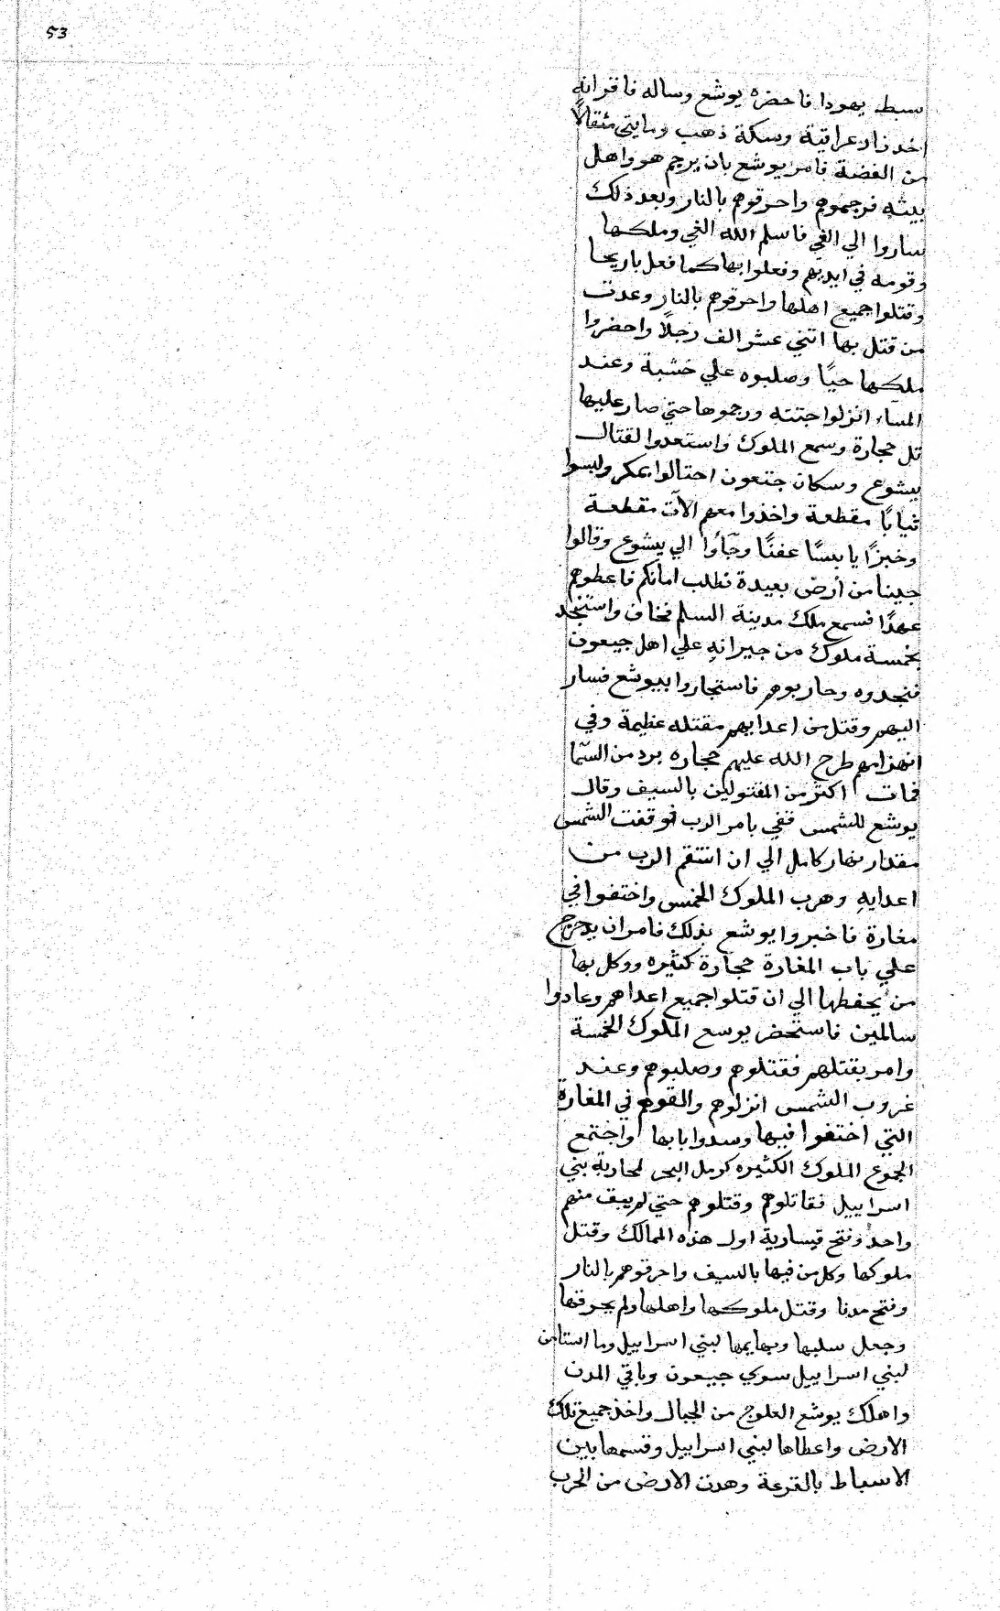 53
سبط يهودا فاحضره يوشع وساله فاقرانه
اخد زنار عراقية وسكة ذهب ومايتي مثقالا
من الفضة فامر يوشع بان يرجم هو واهل
بيته فرجموهم واحرقوهم بالنار وبعد ذلك
ساروا الي الغي فاسلم الله الغي وملكها
وقومه في ايديهم وفعلوا بها كما فعل باريحا
وقتلوا جميع اهلها واحرقوهم بالنار وعدت
من قتل بها اتني عشر الف رجلاً واحضروا
ملكها حيًا وصلبوه علي خشبة وعند
المسآء انزلوا جتته ورجموها حتي صار عليها
تل حجارة وسمع الملوك واستعدوا لقتال
يشوع وسكان جتعون احتالوا بمكر ولبسوا
ثيابًا مقطعة واخذوا معهم الآت مقطعة
وخبزًا يابسًا عفنًا وجآوا الي يشوع وقالوا
جينا من أرض بعيدة نطلب امانكم فاعطوهم
عهدًا فسمع ملك مدينة السلم فخاف واستنجد
بخمسة ملوك من جيرانه علي اهل جيعون
فنجدوه وحاربوهم فاستجاروا بيوشع فسار
اليهم وقتل من اعدايهم مقتله عظيمة وفي
انهزامهم طرح الله عليهم حجاره برد من السمآ
فمات اكتر من المقتولين بالسيف وقال
يوشع للشمس قفي بامر الرب فوقفت الشمس
مقدار نهار كامل الي ان انتقم الرب من
اعدايه وهرب الملوك الخمس واختفوا في
مغارة فاخبروا يوشع بذلك فامران يدحرج
علي باب المغارة حجارة كثيره ووكل بها
من يحفظها الي ان قتلوا جميع اعداهم وعادوا
سالمين فاستحضر يوسع الملوك الخمسة
وامر بقتلهم فقتلوهم وصلبوهم وعند
غروب الشمس انزلوهم والقوهم في المغارة
التي اختفوا فيها وسدوا بابها واجتمع
الجموع الملوك الكثيره كرمل البحر لمحاربة بني
اسراييل فقاتلوهم وقتلوهم حتي لم يبق منهم
واحد وفتح قيسارية اول هذه الممالك وقتل
ملوكها وكل من فيها بالسيف واحرقوهم بالنار
وفتح مدنا وقتل ملوكها واهلها ولم يحرقها
وجعل سلبها وبهايمها لبني اسراييل وما استامن
لبني اسراييل سوي جيعون وباقي المدن
واهلك يوشع العلوج من الجبال واخذ جميع تلك
الارض واعطاها لبني اسراييل وقسمها بين
الاسباط بالقرعة وهدت الارض من الحرب